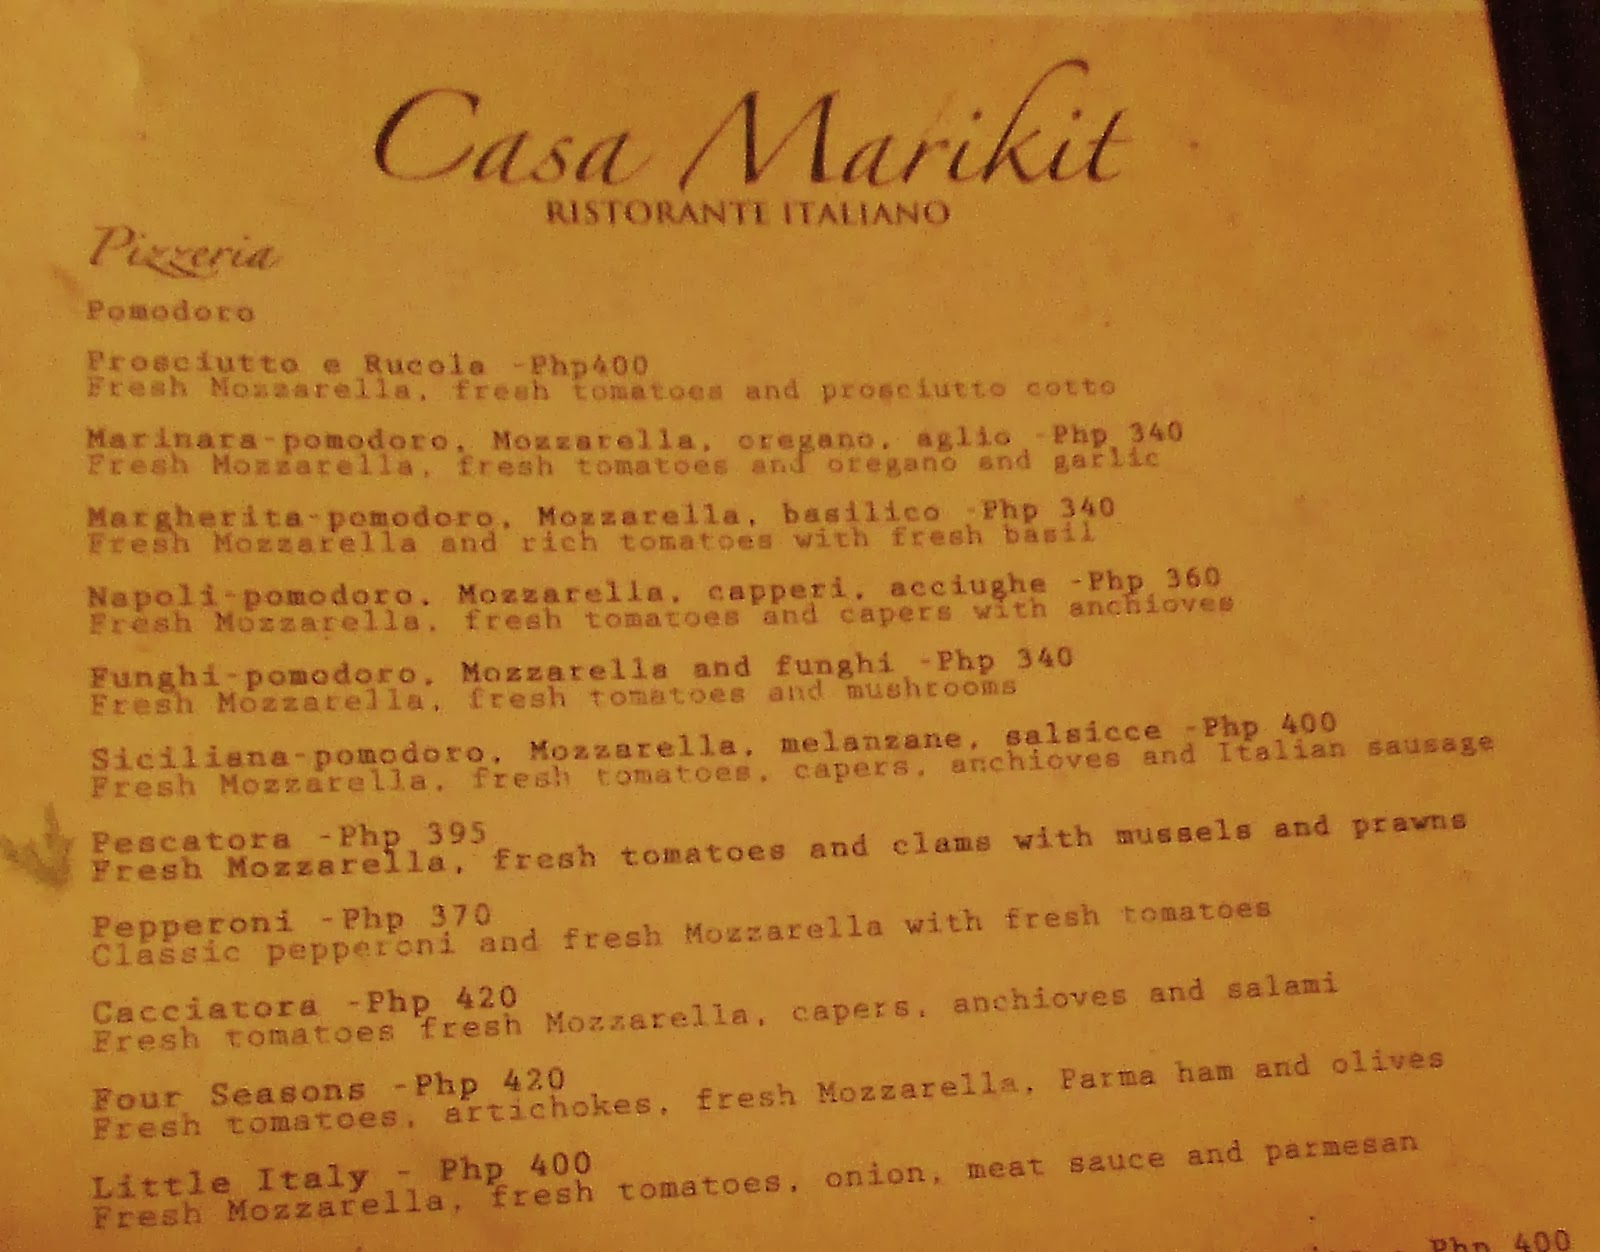 Casa Marikit
RISTORANTE ITALIANO
Pizzeria
Pomodoro
Prosciutto e Rucola -Php400
Fresh Mozzarella, fresh tomatoes and prosciutto cotto
Marinara-pomodoro, Mozzarella, oregano, aglio -Php 340
Fresh Mozzarella, fresh tomatoes and oregano and garlic
Margherita-pomodoro, Mozzarella, basilico -Php 340
Fresh Mozzarella and rich tomatoes with fresh basil
Napoli-pomodoro, Mozzarella, capperi, acciughe -Php 360
Fresh Mozzarella, fresh tomatoes and capers with anchioves
Funghi-pomodoro, Mozzarella and funghi -Php 340
Fresh Mozzarella, fresh tomatoes and mushrooms
Siciliana-pomodoro, Mozzarella, melanzane, salsicce -Php 400
Fresh Mozzarella, fresh tomatoes, capers, anchioves and Italian sausage
Pescatora -Php 395
Fresh Mozzarella, fresh tomatoes and clams with mussels and prawns
Pepperoni -Php 370
Classic pepperoni and fresh Mozzarella with fresh tomatoes
Cacciatora -Php 420
Fresh tomatoes fresh Mozzarella, capers, anchioves and salami
Four Seasons -Php 420
Fresh tomatoes, artichokes, fresh Mozzarella, Parma ham and olives
Little Italy - Php 400
Fresh Mozzarella, fresh tomatoes, onion, meat sauce and parmesan
Php 400